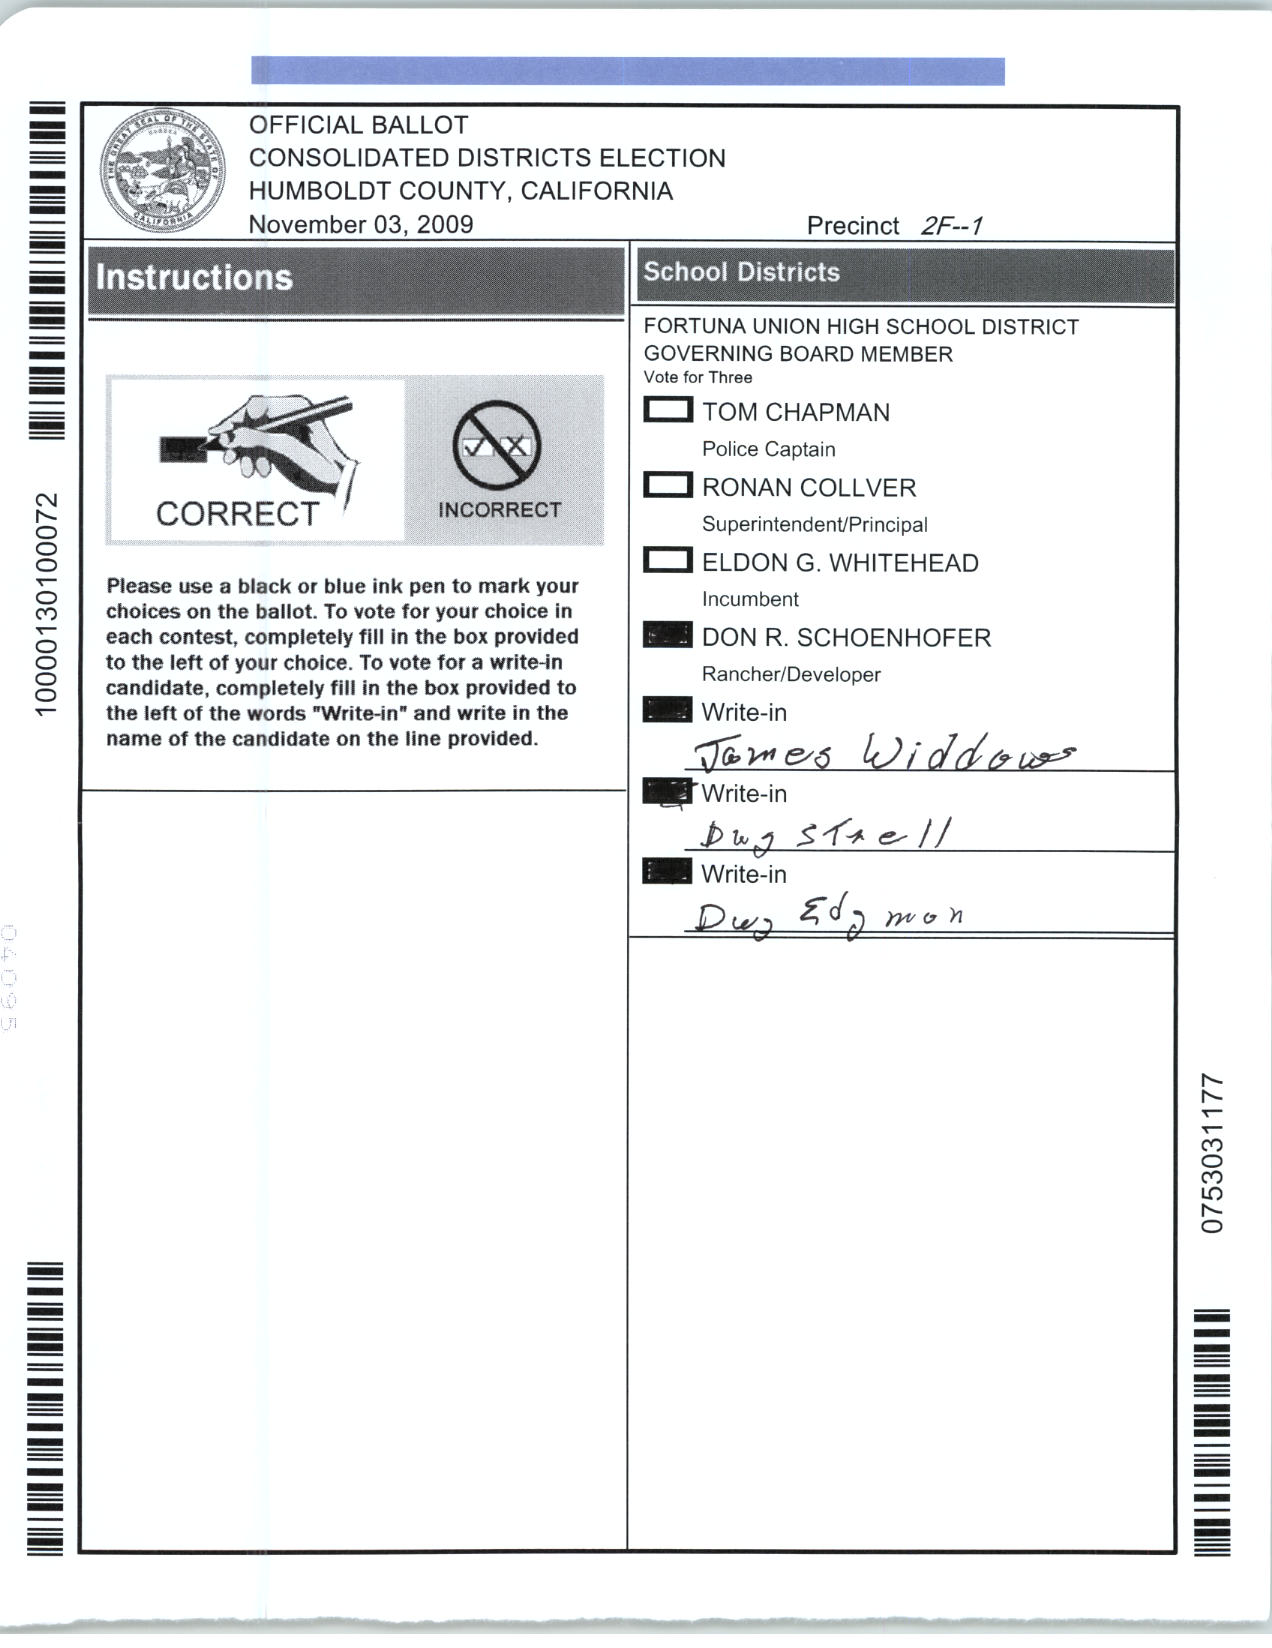 OFFICIAL BALLOT
CONSOLIDATED DISTRICTS ELECTION
HUMBOLDT COUNTY, CALIFORNIA
November 03, 2009
Precinct 2F--1
THE GREAT SEAL OF THE STATE OF CALIFORNIA
EUREKA
Instructions
CORRECT
INCORRECT
Please use a black or blue ink pen to mark your
choices on the ballot. To vote for your choice in
each contest, completely fill in the box provided
to the left of your choice. To vote for a write-in
candidate, completely fill in the box provided to
the left of the words "Write-in" and write in the
name of the candidate on the line provided.
School Districts
FORTUNA UNION HIGH SCHOOL DISTRICT
GOVERNING BOARD MEMBER
Vote for Three
TOM CHAPMAN
Police Captain
RONAN COLLVER
Superintendent/Principal
ELDON G. WHITEHEAD
Incumbent
DON R. SCHOENHOFER
Rancher/Developer
Write-in
James Widdows
Write-in
Dug Strell
Write-in
Dug Edgmon
10000130100072
04095
0753031177